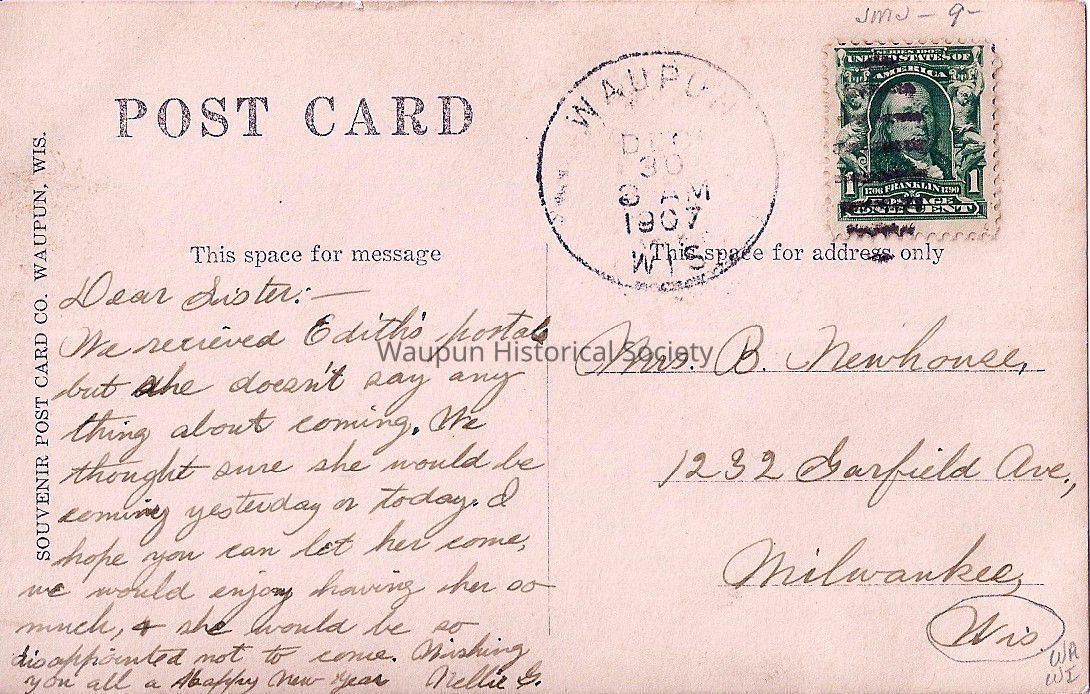 JMJ - 9 -
POST CARD
WAUPUN
DEC
30
8 AM
1907
WIS.
SERIES 1902
UNITED STATES OF
AMERICA
1 1706 FRANKLIN 1790 1
POSTAGE
ONE CENT
SOUVENIR POST CARD CO. WAUPUN, WIS.
This space for message
This space for address only
Dear Sister:—
We recieved Edith's postals
but she doesn't say any
thing about coming. We
thought sure she would be
coming yesterday or today. I
hope you can let her come,
we would enjoy having her so
much, & she would be so
disappointed not to come. Wishing
you all a Happy New Year Nellie G.
Waupun Historical Society
Mrs. B. Newhouse,
1232 Garfield Ave.,
Milwaukee,
Wis.
WA
WI